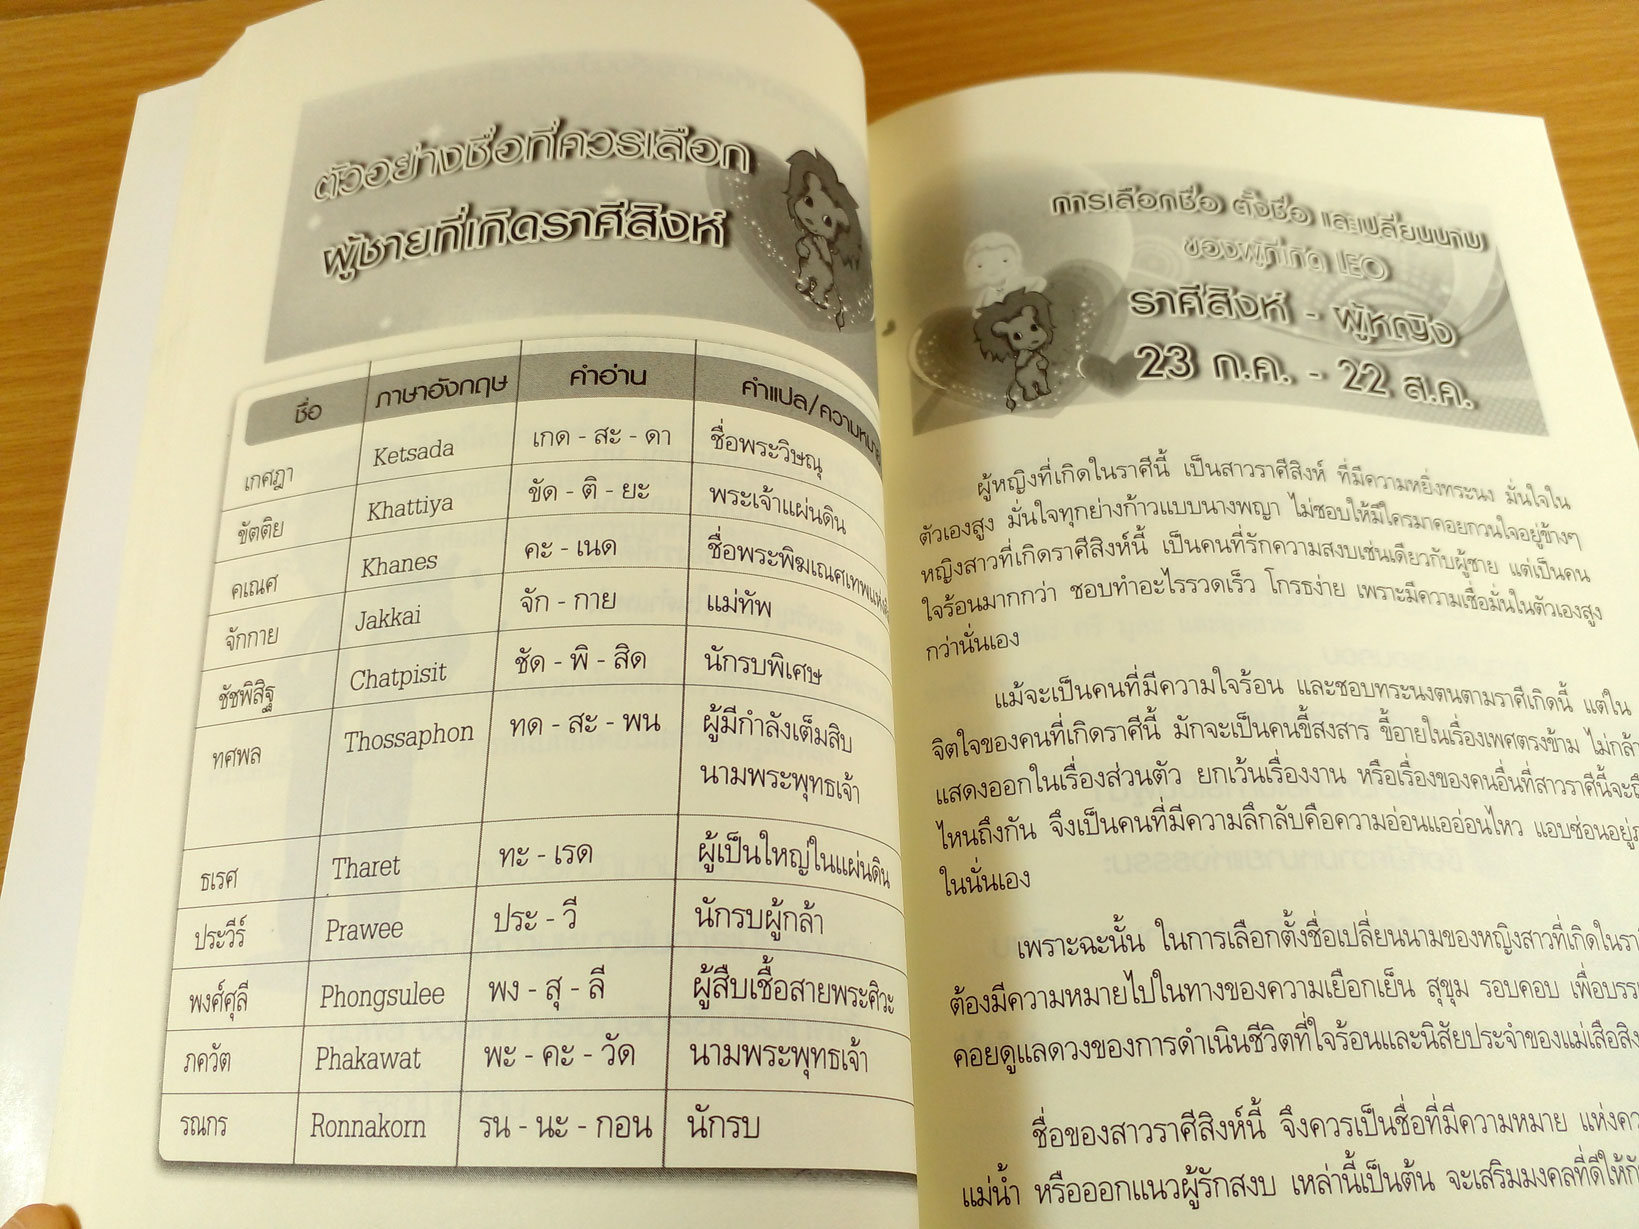 ตัวอย่างชื่อที่ควรเลือก
ผู้ชายที่เกิดราศีสิงห์
ชื่อ ภาษาอังกฤษ คำอ่าน คำแปล/ความหมาย
เกศฎา Ketsada เกด - สะ - ดา ชื่อพระวิษณุ
ขัตติย Khattiya ขัด - ติ - ยะ พระเจ้าแผ่นดิน
คเณศ Khanes คะ - เนด ชื่อพระพิฆเณศเทพแห่ง
จักกาย Jakkai จัก - กาย แม่ทัพ
ชัชพิสิฐ Chatpisit ชัด - พิ - สิด นักรบพิเศษ
ทศพล Thossaphon ทด - สะ - พน ผู้มีกำลังเต็มสิบ
นามพระพุทธเจ้า
ธเรศ Tharet ทะ - เรด ผู้เป็นใหญ่ในแผ่นดิน
ประวีร์ Prawee ประ - วี นักรบผู้กล้า
พงศ์ศุลี Phongsulee พง - สุ - ลี ผู้สืบเชื้อสายพระศิวะ
ภควัต Phakawat พะ - คะ - วัด นามพระพุทธเจ้า
รณกร Ronnakorn รน - นะ - กอน นักรบ
การเลือกชื่อ ตั้งชื่อ และเปลี่ยนนาม
ของผู้ที่เกิด LEO
ราศีสิงห์ - ผู้หญิง
23 ก.ค. - 22 ส.ค.
ผู้หญิงที่เกิดในราศีนี้ เป็นสาวราศีสิงห์ ที่มีความหยิ่งทระนง มั่นใจใน
ตัวเองสูง มั่นใจทุกย่างก้าวแบบนางพญา ไม่ชอบให้มีใครมาคอยกวนใจอยู่ข้างๆ
หญิงสาวที่เกิดราศีสิงห์นี้ เป็นคนที่รักความสงบเช่นเดียวกับผู้ชาย แต่เป็นคน
ใจร้อนมากกว่า ชอบทำอะไรรวดเร็ว โกรธง่าย เพราะมีความเชื่อมั่นในตัวเองสูง
กว่านั่นเอง
แม้จะเป็นคนที่มีความใจร้อน และชอบทระนงตนตามราศีเกิดนี้ แต่ใน
จิตใจของคนที่เกิดราศีนี้ มักจะเป็นคนขี้สงสาร ขี้อายในเรื่องเพศตรงข้าม ไม่กล้า
แสดงออกในเรื่องส่วนตัว ยกเว้นเรื่องงาน หรือเรื่องของคนอื่นที่สาวราศีนี้จะ
ไหนถึงกัน จึงเป็นคนที่มีความลึกลับคือความอ่อนแออ่อนไหว แอบซ่อนอยู่
ในนั่นเอง
เพราะฉะนั้น ในการเลือกตั้งชื่อเปลี่ยนนามของหญิงสาวที่เกิดใน
ต้องมีความหมายไปในทางของความเยือกเย็น สุขุม รอบคอบ เพื่อ
คอยดูแลดวงของการดำเนินชีวิตที่ใจร้อนและนิสัยประจำของแม่เสือ
ชื่อของสาวราศีสิงห์นี้ จึงควรเป็นชื่อที่มีความหมาย แห่ง
แม่น้ำ หรือออกแนวผู้รักสงบ เหล่านี้เป็นต้น จะเสริมมงคลที่ดีให้